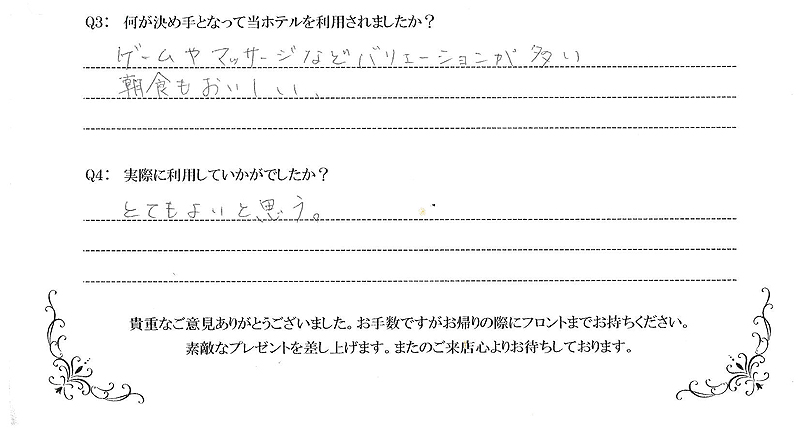 Q3: 何が決め手となって当ホテルを利用されましたか？
ゲームやマッサージなどバリエーションが多い
朝食もおいしい、
Q4: 実際に利用していかがでしたか？
とてもよいと思う。
貴重なご意見ありがとうございました。お手数ですがお帰りの際にフロントまでお持ちください。
素敵なプレゼントを差し上げます。またのご来店心よりお待ちしております。